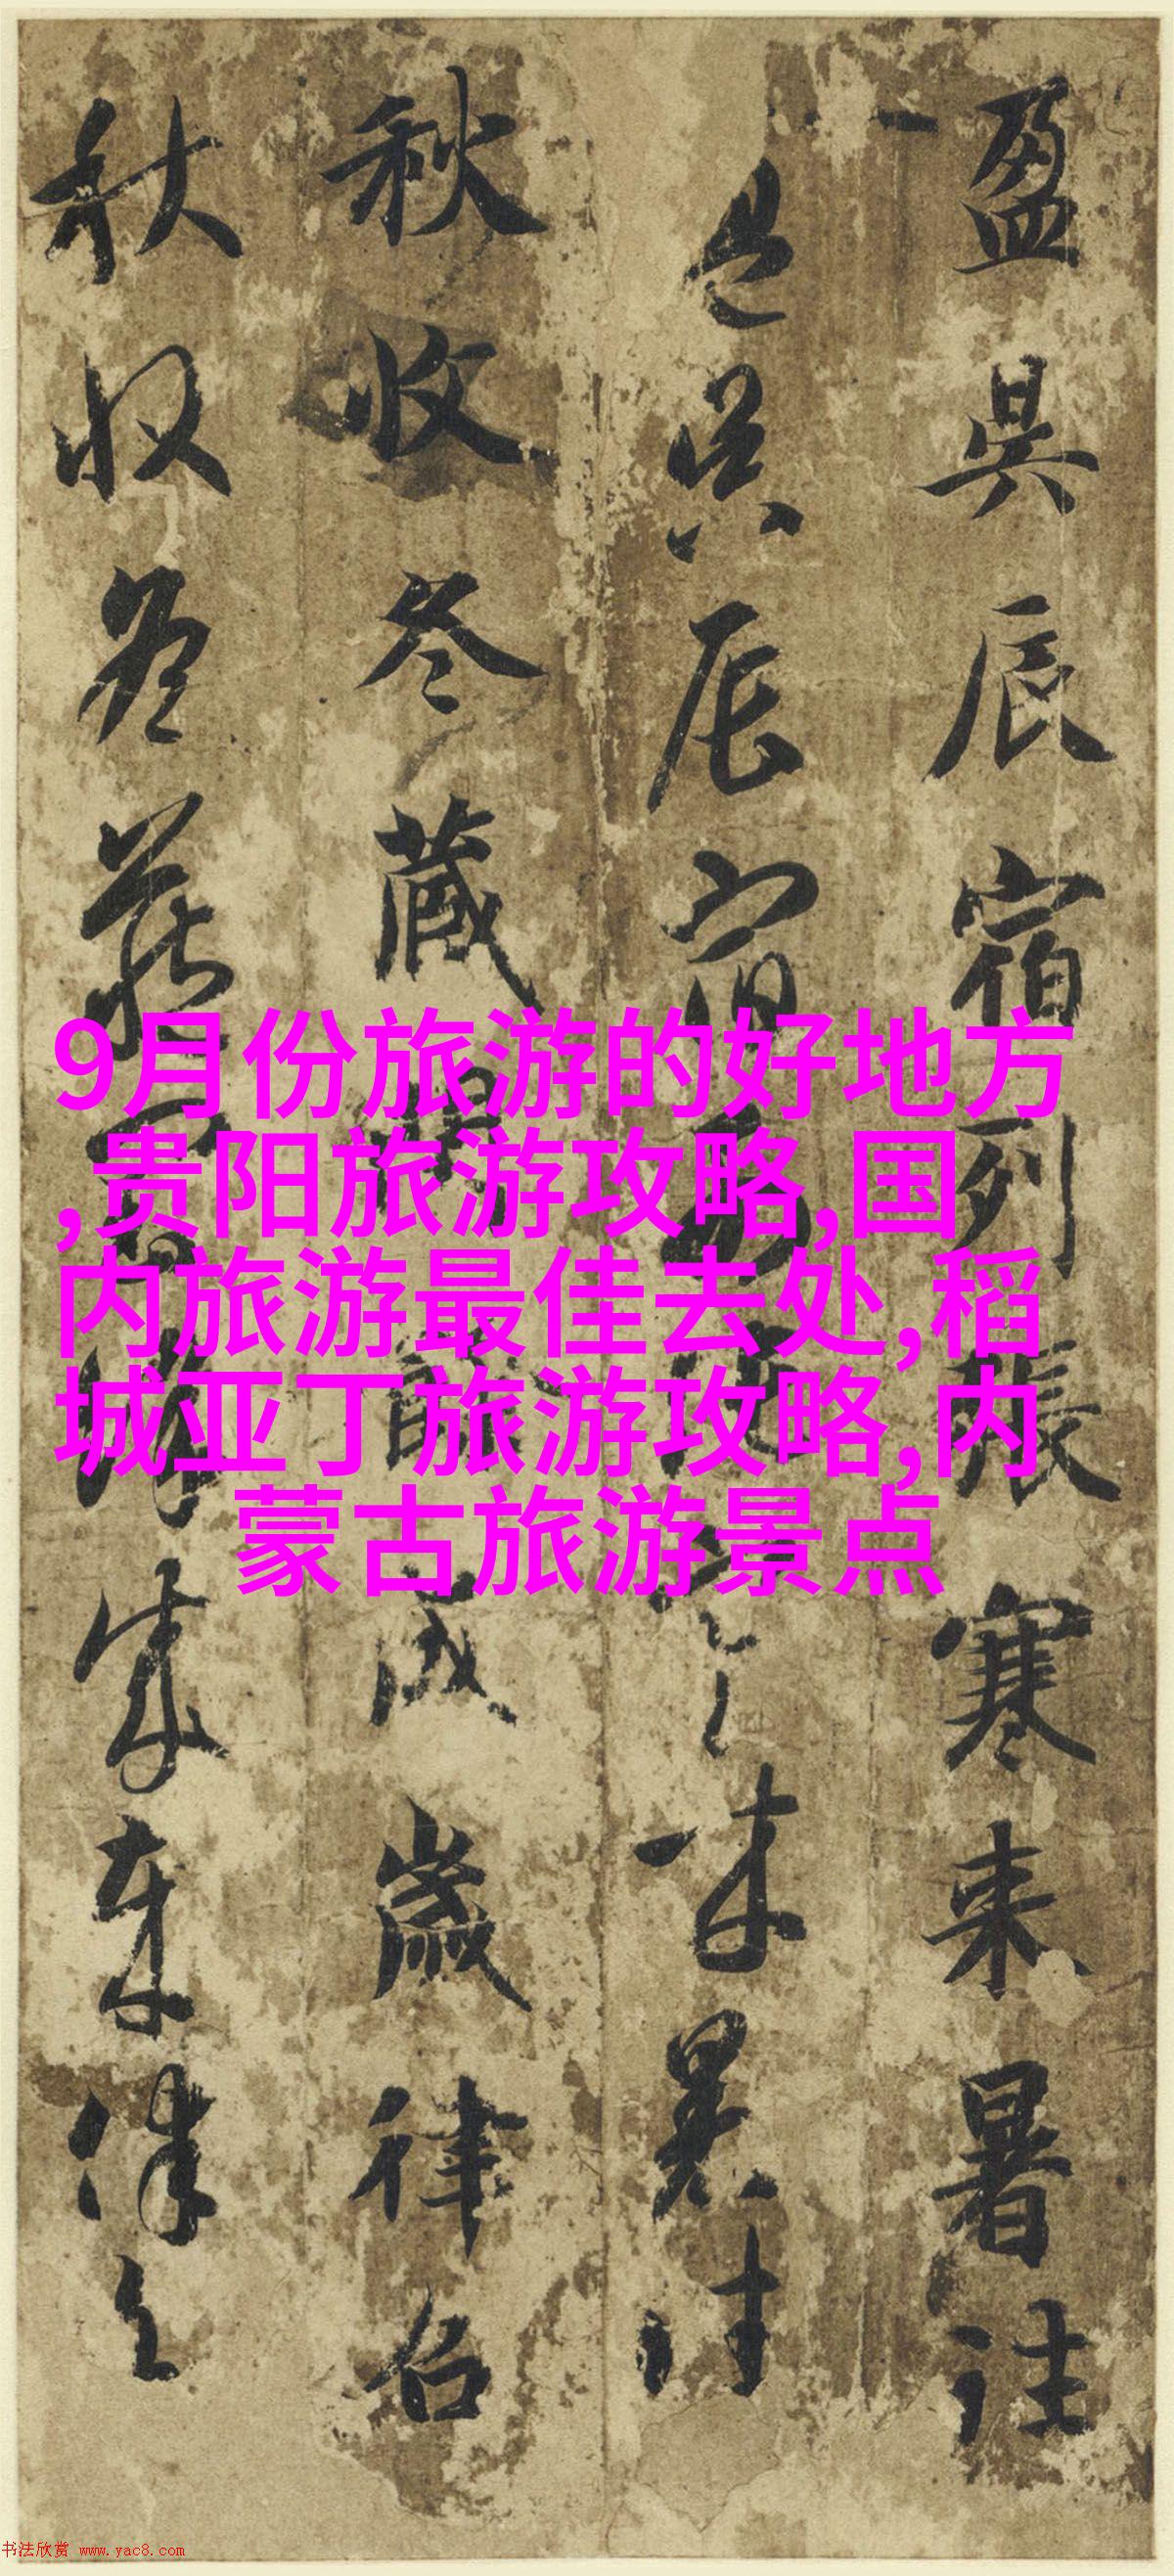 盈昃辰宿列張寒来暑往
盈昃辰宿来暑往
秋收冬藏成歲律召
秋收冬藏
9月份旅游的好地方
,贵阳旅游攻略,国
内旅游最佳去处,稻
城亚丁旅游攻略,内
蒙古旅游景点
书法欣赏 www.yac8.com